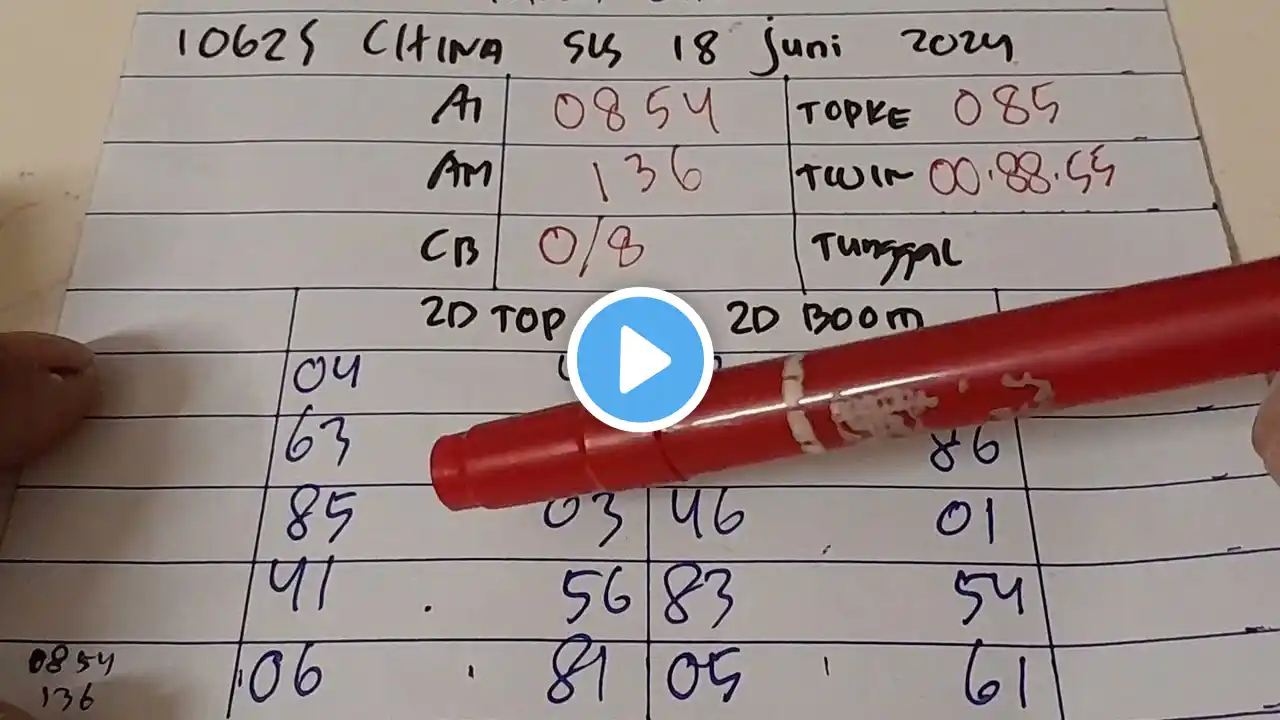 10625 CHINA SLS 18 juni 2024
AI 0854 TOPKE 085
AM 136 TWIN 00.88.55
CB 0/8 Tunggal
2D TOP 2D BOOM
04
63 86
85 03 46 01
41 56 83 54
06 81 05 61
0854
136